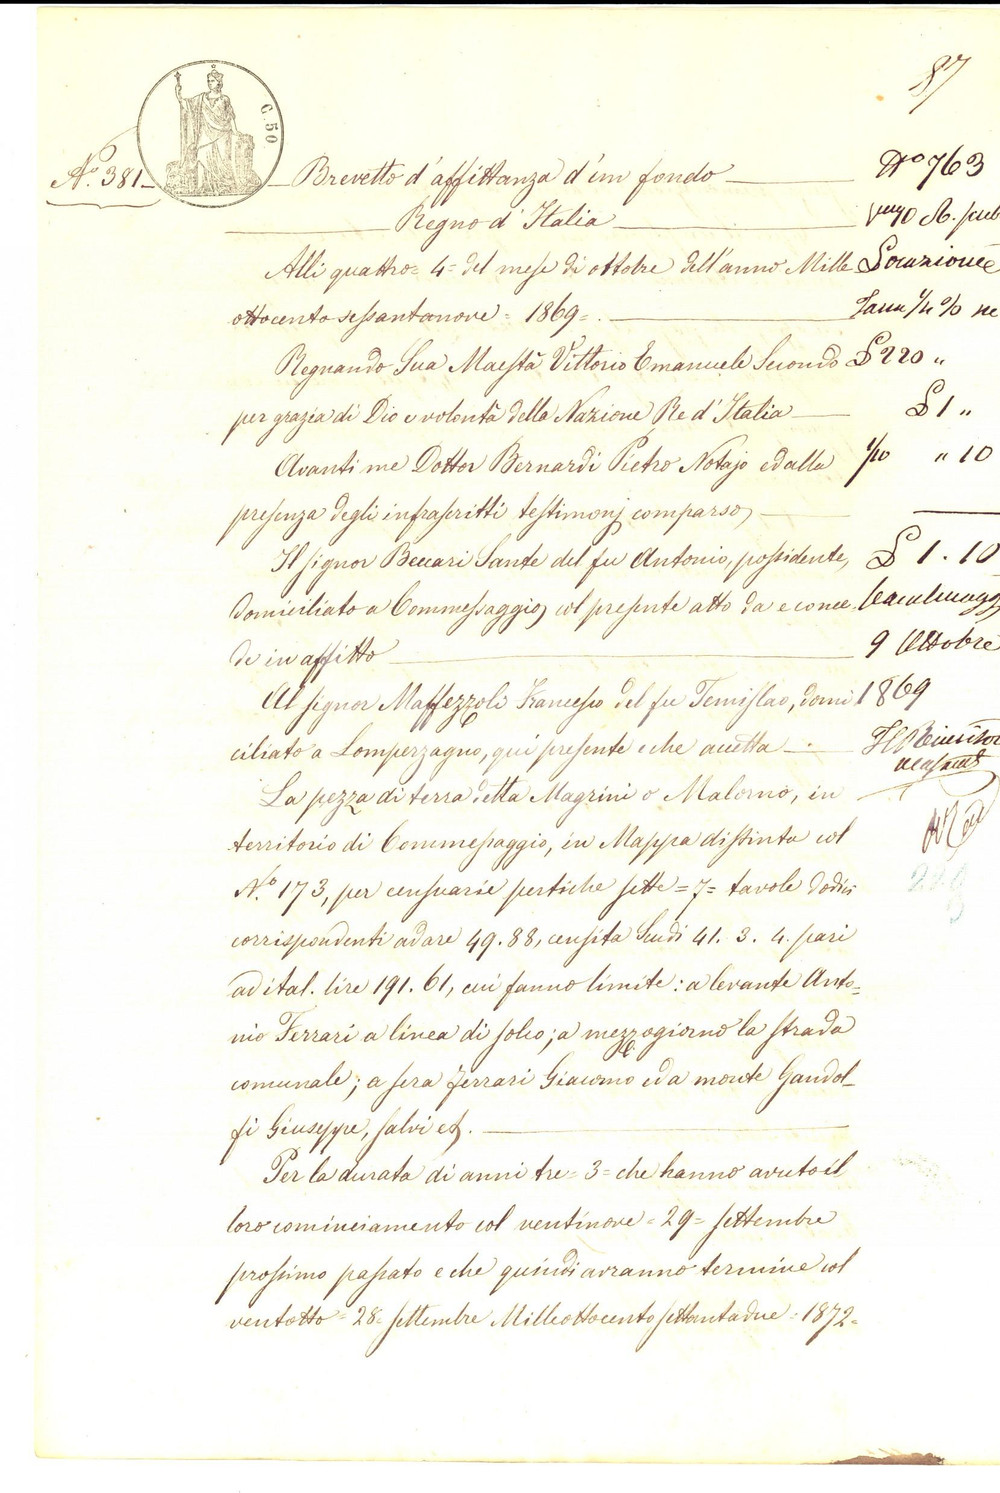 87
C. 50
N.° 381
Brevetto d'affittanza d'un fondo
Regno d'Italia
Alli quattro = 4 = del mese di ottobre dell'anno Mille
ottocento sessantanove = 1869 =.
Regnando Sua Maestà Vittorio Emanuele Secondo
per grazia di Dio e volontà della Nazione Re d'Italia
Avanti me Dottor Bernardi Pietro Notajo ed alla
presenza degli infrascritti testimonj comparso
Il signor Beccari Sante del fu Antonio, possidente,
domiciliato a Commessaggio, col presente atto da e conce
de in affitto
Al signor Maffezzoli Francesco del fu Temislao, domi
ciliato a, qui presente e che accetta
La pezza di terra detta Magrini o Malomo, in
territorio di Commessaggio, in Mappa distinta col
N.° 173, per censuarie pertiche sette = 7 = tavole dodici
corrispondenti ad are 49.88, censita Scudi 41. 3. 4. pari
ad ital. lire 191.61, cui fanno limite: a levante Anto=
nio Ferrari a linea di solco; a mezzogiorno la strada
comunale; a sera Ferrari Giacomo ed a monte Gandol_
fi Giuseppe, salvi et.
Per la durata di anni tre = 3 = che hanno avuto il
loro cominciamento col ventinove = 29 = settembre
prossimo passato e che quindi avranno termine col
ventotto = 28 = settembre Milleottocento settantadue = 1872 =
N° 763
Locazione
£ 220 "
£ 1 "
1/10 " 10
£ 1. 10
9 Ottobre
1869
Il Ricevitore